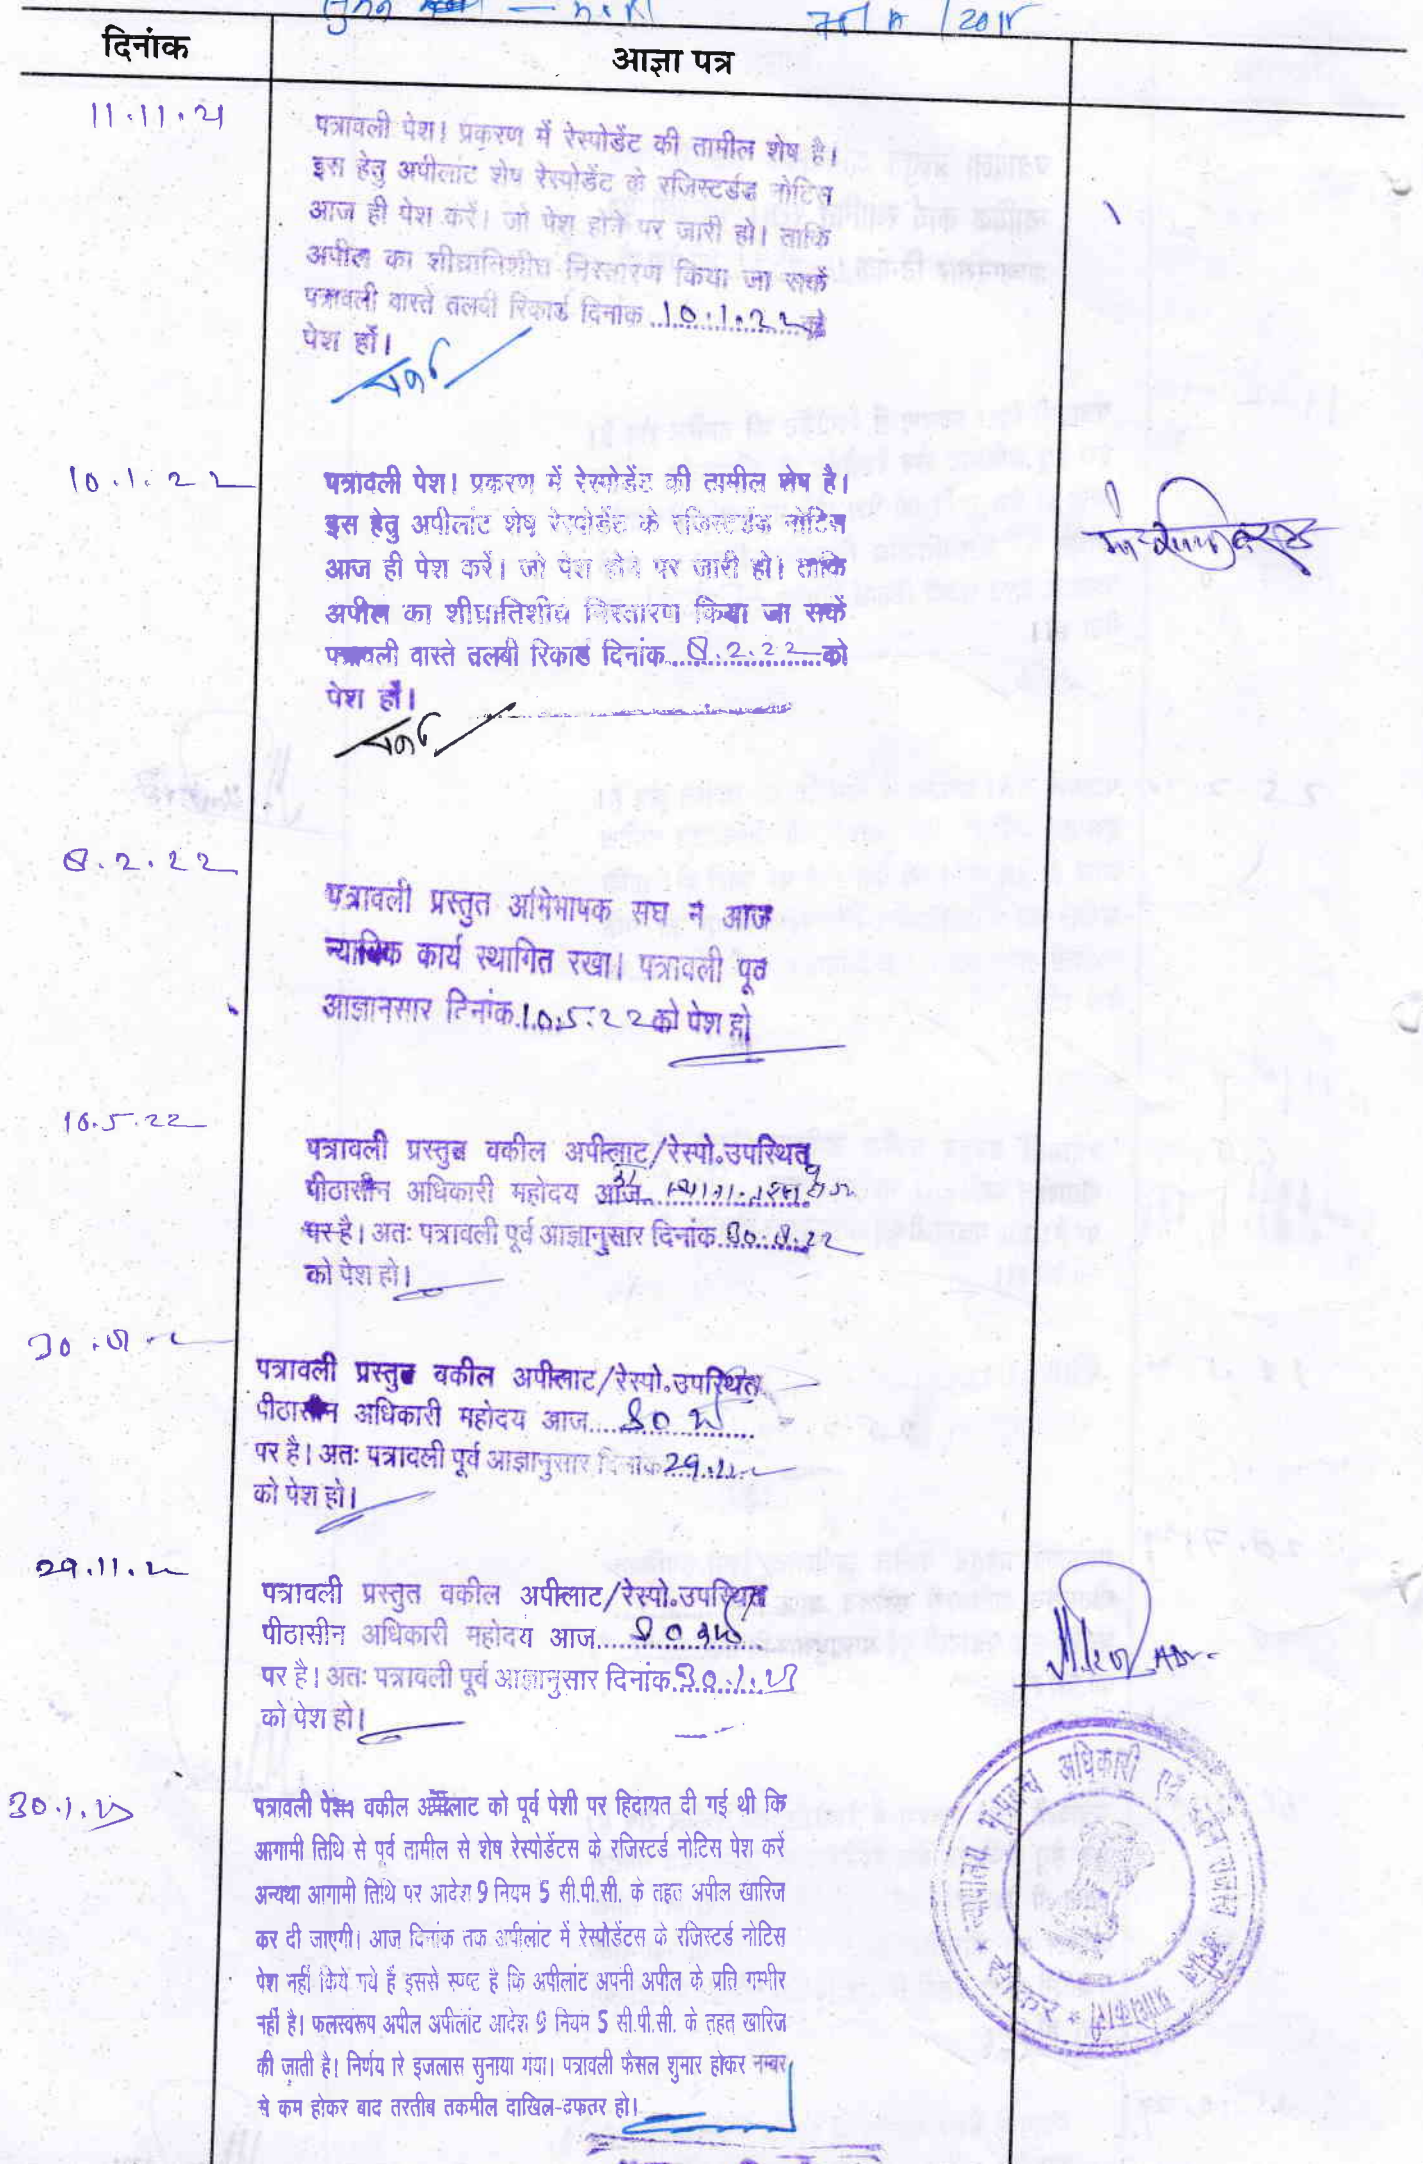 /2018
दिनांक
आज्ञा पत्र
11.11.21
पत्रावली पेश। प्रकरण में रेस्पोडेंट की तामील शेष है।
इस हेतु अपीलांट शेष रेस्पोडेंट के रजिस्टर्डड नोटिस
आज ही पेश करें। जो पेश होने पर जारी हो। ताकि
अपील का शीघ्रातिशीघ्र निस्तारण किया जा सकें
पत्रावली वास्ते तलबी रिकार्ड दिनांक 10.1.22 को
पेश हों।
10.1.22
पत्रावली पेश। प्रकरण में रेस्पोडेंट की तामील शेष है।
इस हेतु अपीलांट शेष रेस्पोडेंट के रजिस्टर्डड नोटिस
आज ही पेश करें। जो पेश होने पर जारी हो। ताकि
अपील का शीघ्रातिशीघ्र निस्तारण किया जा सकें
पत्रावली वास्ते तलबी रिकार्ड दिनांक 8.2.22 को
पेश हों।
8.2.22
पत्रावली प्रस्तुत अभिभाषक संघ ने आज
न्यायिक कार्य स्थागित रखा। पत्रावली पूर्व
आज्ञानसार दिनांक 10.5.22 को पेश हो
10.5.22
पत्रावली प्रस्तुत वकील अपीलाट/रेस्पो.उपस्थित
पीठासीन अधिकारी महोदय आज
पर है। अतः पत्रावली पूर्व आज्ञानुसार दिनांक 30.8.22
को पेश हो।
पत्रावली प्रस्तुत वकील अपीलाट/रेस्पो.उपस्थित
पीठासीन अधिकारी महोदय आज
पर है। अतः पत्रावली पूर्व आज्ञानुसार दिनांक 29.11.22
को पेश हो।
29.11.22
पत्रावली प्रस्तुत वकील अपीलाट/रेस्पो.उपस्थित
पीठासीन अधिकारी महोदय आज
पर है। अतः पत्रावली पूर्व आज्ञानुसार दिनांक 30.1.23
को पेश हो।
Adv.
30.1.23
पत्रावली पेश। वकील अपीलाट को पूर्व पेशी पर हिदायत दी गई थी कि
आगामी तिथि से पूर्व तामील से शेष रेस्पोडेंटस के रजिस्टर्ड नोटिस पेश करें
अन्यथा आगामी तिथि पर आदेश 9 नियम 5 सी.पी.सी. के तहत अपील खारिज
कर दी जाएगी। आज दिनांक तक अपीलांट में रेस्पोडेंटस के रजिस्टर्ड नोटिस
पेश नहीं किये गये है इससे स्पष्ट है कि अपीलांट अपनी अपील के प्रति गम्भीर
नहीं है। फलस्वरूप अपील अपीलांट आदेश 9 नियम 5 सी.पी.सी. के तहत खारिज
की जाती है। निर्णय रे इजलास सुनाया गया। पत्रावली फैसल शुमार होकर नम्बर
से कम होकर बाद तरतीब तकमील दाखिल-दफतर हो।
न्यायालय भू-प्रबन्ध अधिकारी एवं पदेन राजस्व अपील प्राधिकारी
* सीकर *